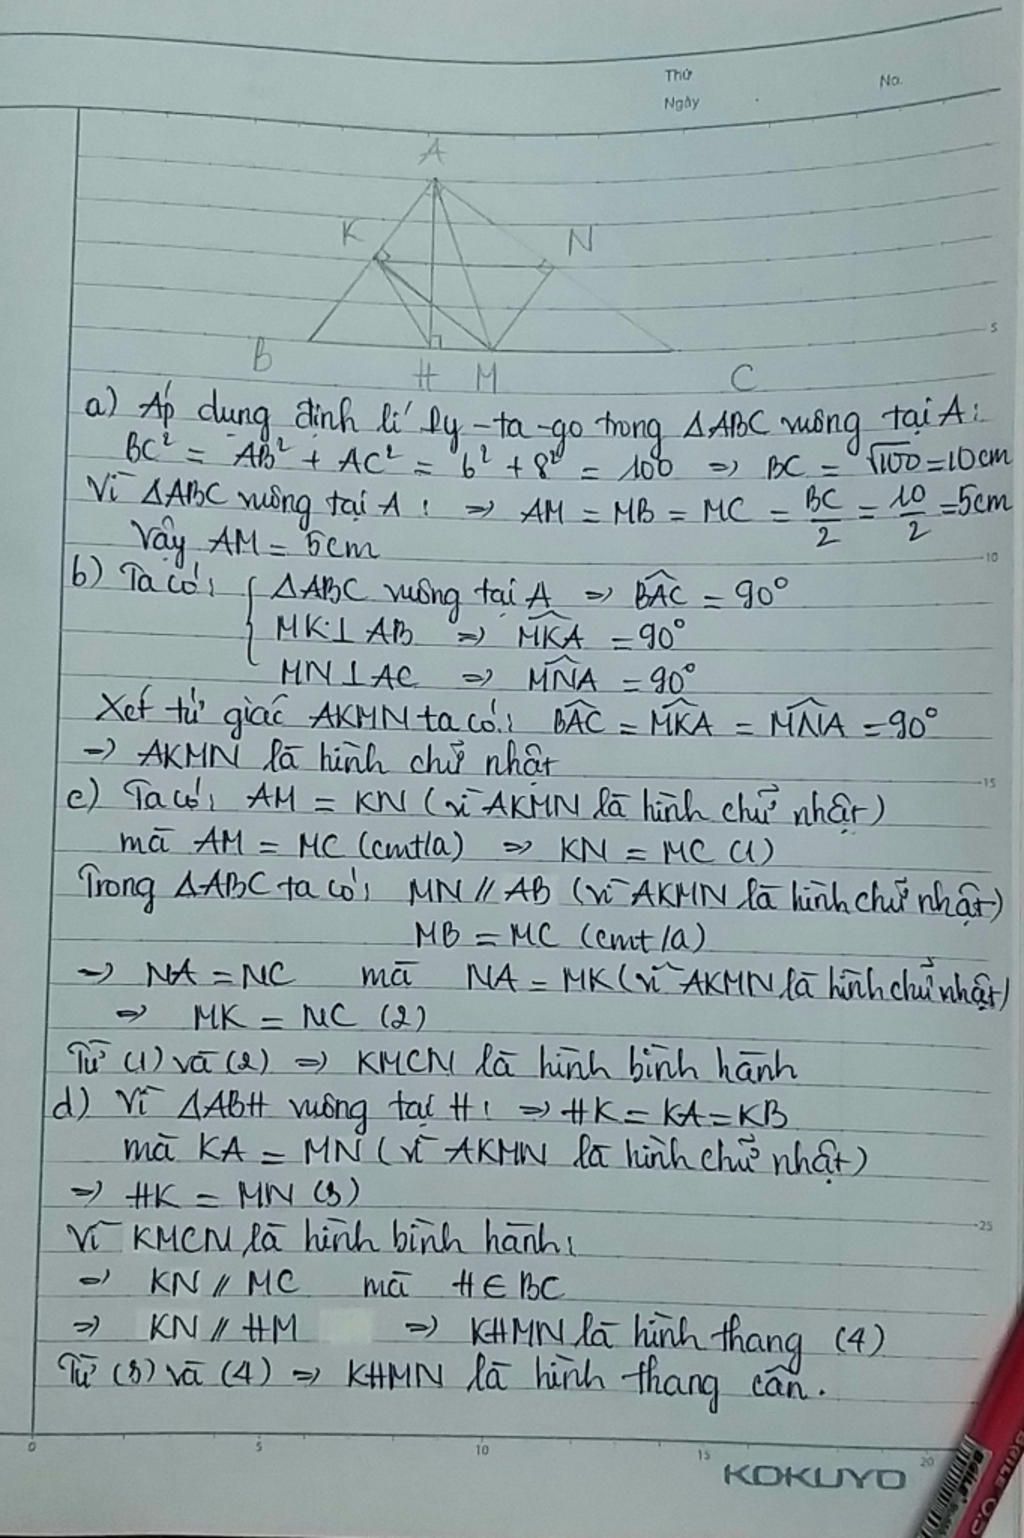 Thứ
No.
Ngày
A
K
N
B
H
M
C
5
a) Áp dụng định lí Py-ta-go trong ΔABC vuông tại A:
BC² = AB² + AC² = 6² + 8² = 100 => BC = √100 = 10cm
Vì ΔABC vuông tại A : => AM = MB = MC = BC/2 = 10/2 = 5cm
Vậy AM = 5cm
10
b) Ta có: { ΔABC vuông tại A => \widehat{BAC} = 90°
MK ⊥ AB => \widehat{MKA} = 90°
MN ⊥ AC => \widehat{MNA} = 90°
Xét tứ giác AKMN ta có: \widehat{BAC} = \widehat{MKA} = \widehat{MNA} = 90°
=> AKMN là hình chữ nhật
15
c) Ta có: AM = KN (vì AKMN là hình chữ nhật)
mà AM = MC (cmt/a) => KN = MC (1)
Trong ΔABC ta có: MN // AB (vì AKMN là hình chữ nhật)
MB = MC (cmt/a)
=> NA = NC mà NA = MK (vì AKMN là hình chữ nhật)
=> MK = NC (2)
Từ (1) và (2) => KMCN là hình bình hành
d) Vì ΔABH vuông tại H : => HK = KA = KB
mà KA = MN (vì AKMN là hình chữ nhật)
=> HK = MN (3)
25
Vì KMCN là hình bình hành:
=> KN // MC mà H ∈ BC
=> KN // HM => KHMN là hình thang (4)
Từ (3) và (4) => KHMN là hình thang cân.
0 5 10 15 20
KOKUYO